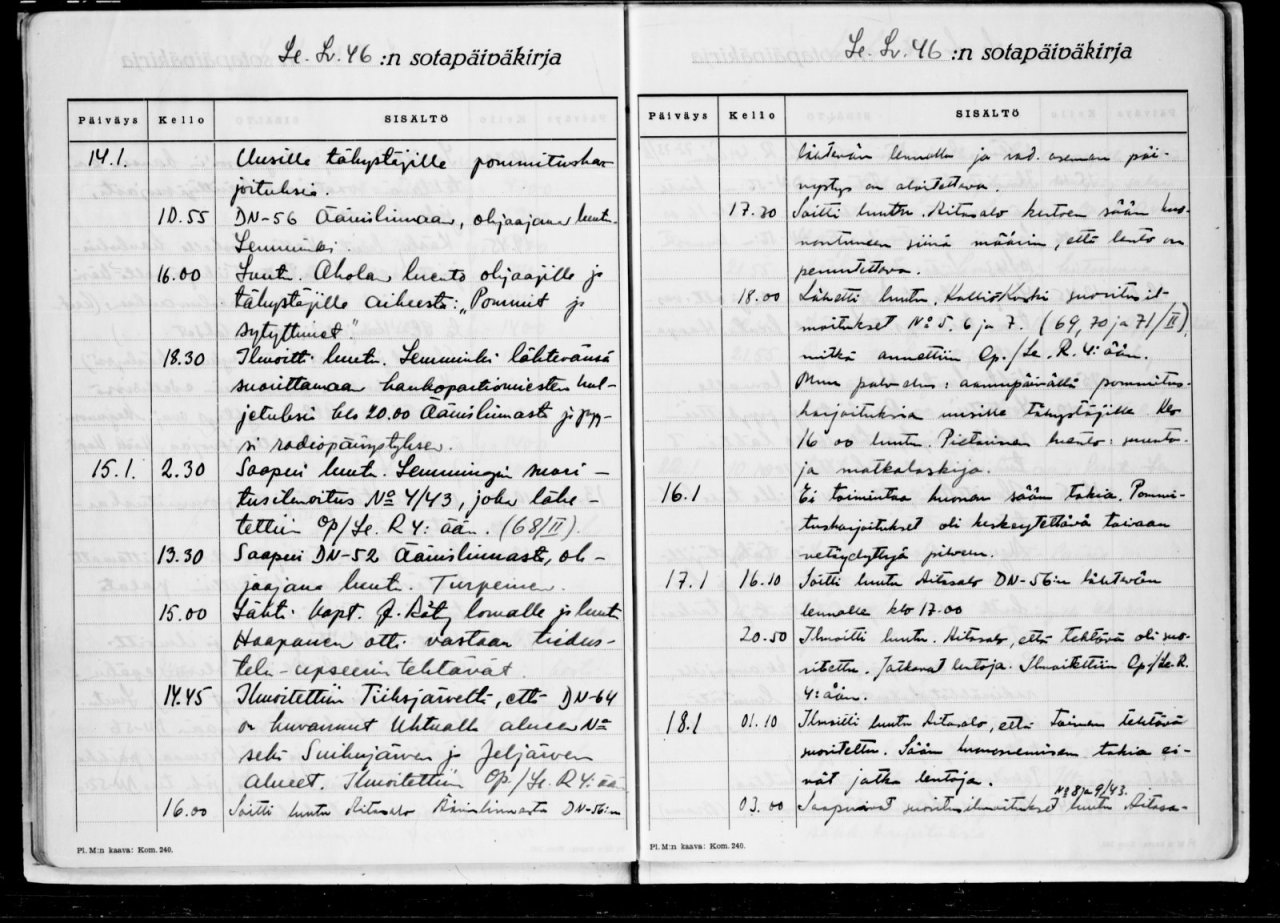 Le. Lv. 46 :n sotapäiväkirja
Päiväys Kello SISÄLTÖ
14.1. Uusille tähystäjille pommitushar-
joituksia.
10.55 DN-56 Äänislinnaan, ohjaajana luutn.
Lemminki
16.00 Luutn. Ahola luento ohjaajille ja
tähystäjille aiheesta: "Pommit ja
sytyttimet".
18.30 Ilmoitti luutn. Lemminki lähtevänsä
suorittamaan kaukopartiomiesten kul-
jetuksia klo 20.00 Äänislinnasta ja pyy-
si radiopäivystyksen.
15.1. 2.30 Saapui luutn. Lemmingin suori-
tusilmoitus No 4/43, joka lähe-
tettiin Op/Le. R 4: ään. (68/II).
13.30 Saapui DN-52 Äänislinnasta, oh-
jaajana luutn. Turpeinen.
15.00 Lähti kapt. Räty lomalle ja luutn.
Haapanen otti vastaan tiedus-
telu-upseerin tehtävät.
14.45 Ilmoitettiin Tiiksjärveltä, että DN-64
on kuvannut Uhtualla alueen No
sekä Suikujärven ja Jeljärven
alueet. Ilmoitettiin Op/Le. R 4: ään
16.00 Soitti luutn. Aitasalo Äänislinnasta DN-56:n
Pl. M:n kaava: Kom. 240.
Le. Lv. 46 :n sotapäiväkirja
Päiväys Kello SISÄLTÖ
lähtevän lennolle ja rad. aseman päi-
vystys on aloitettava.
17.20 Soitti luutn. Aitasalo kertoen sään huo-
nontuneen siinä määrin, että lento on
peruutettava.
18.00 Lähetti luutn. Kalliokoski suoritusil-
moitukset No 5, 6 ja 7. (69, 70 ja 71/II),
mitkä annettiin Op./Le. R. 4: ään.
Muu palvelus: aamupäivällä pommitus-
harjoituksia uusille tähystäjille. Klo
16.00 luutn. Pietarinen luento: suunta-
ja matkalaskija.
16.1 Ei toimintaa huonon sään takia. Pommi-
tusharjoitukset oli keskeytettävä taivaan
vetäydyttyä pilveen.
17.1 16.10 Soitti luutn. Aitasalo DN-56:n lähtevän
lennolle klo 17.00
20.50 Ilmoitti luutn. Aitasalo, että tehtävä oli suo-
ritettu. Jatkavat lentoja. Ilmoitettiin Op./Le. R.
4: ään.
18.1 01.10 Ilmoitti luutn. Aitasalo, että toinen tehtävä
suoritettu. Sään huononemisen takia ei-
vät jatka lentoja.
No 8 ja 9/43.
03.00 Saapuivat suoritusilmoitukset luutn. Aitasa-
Pl. M:n kaava: Kom. 240.